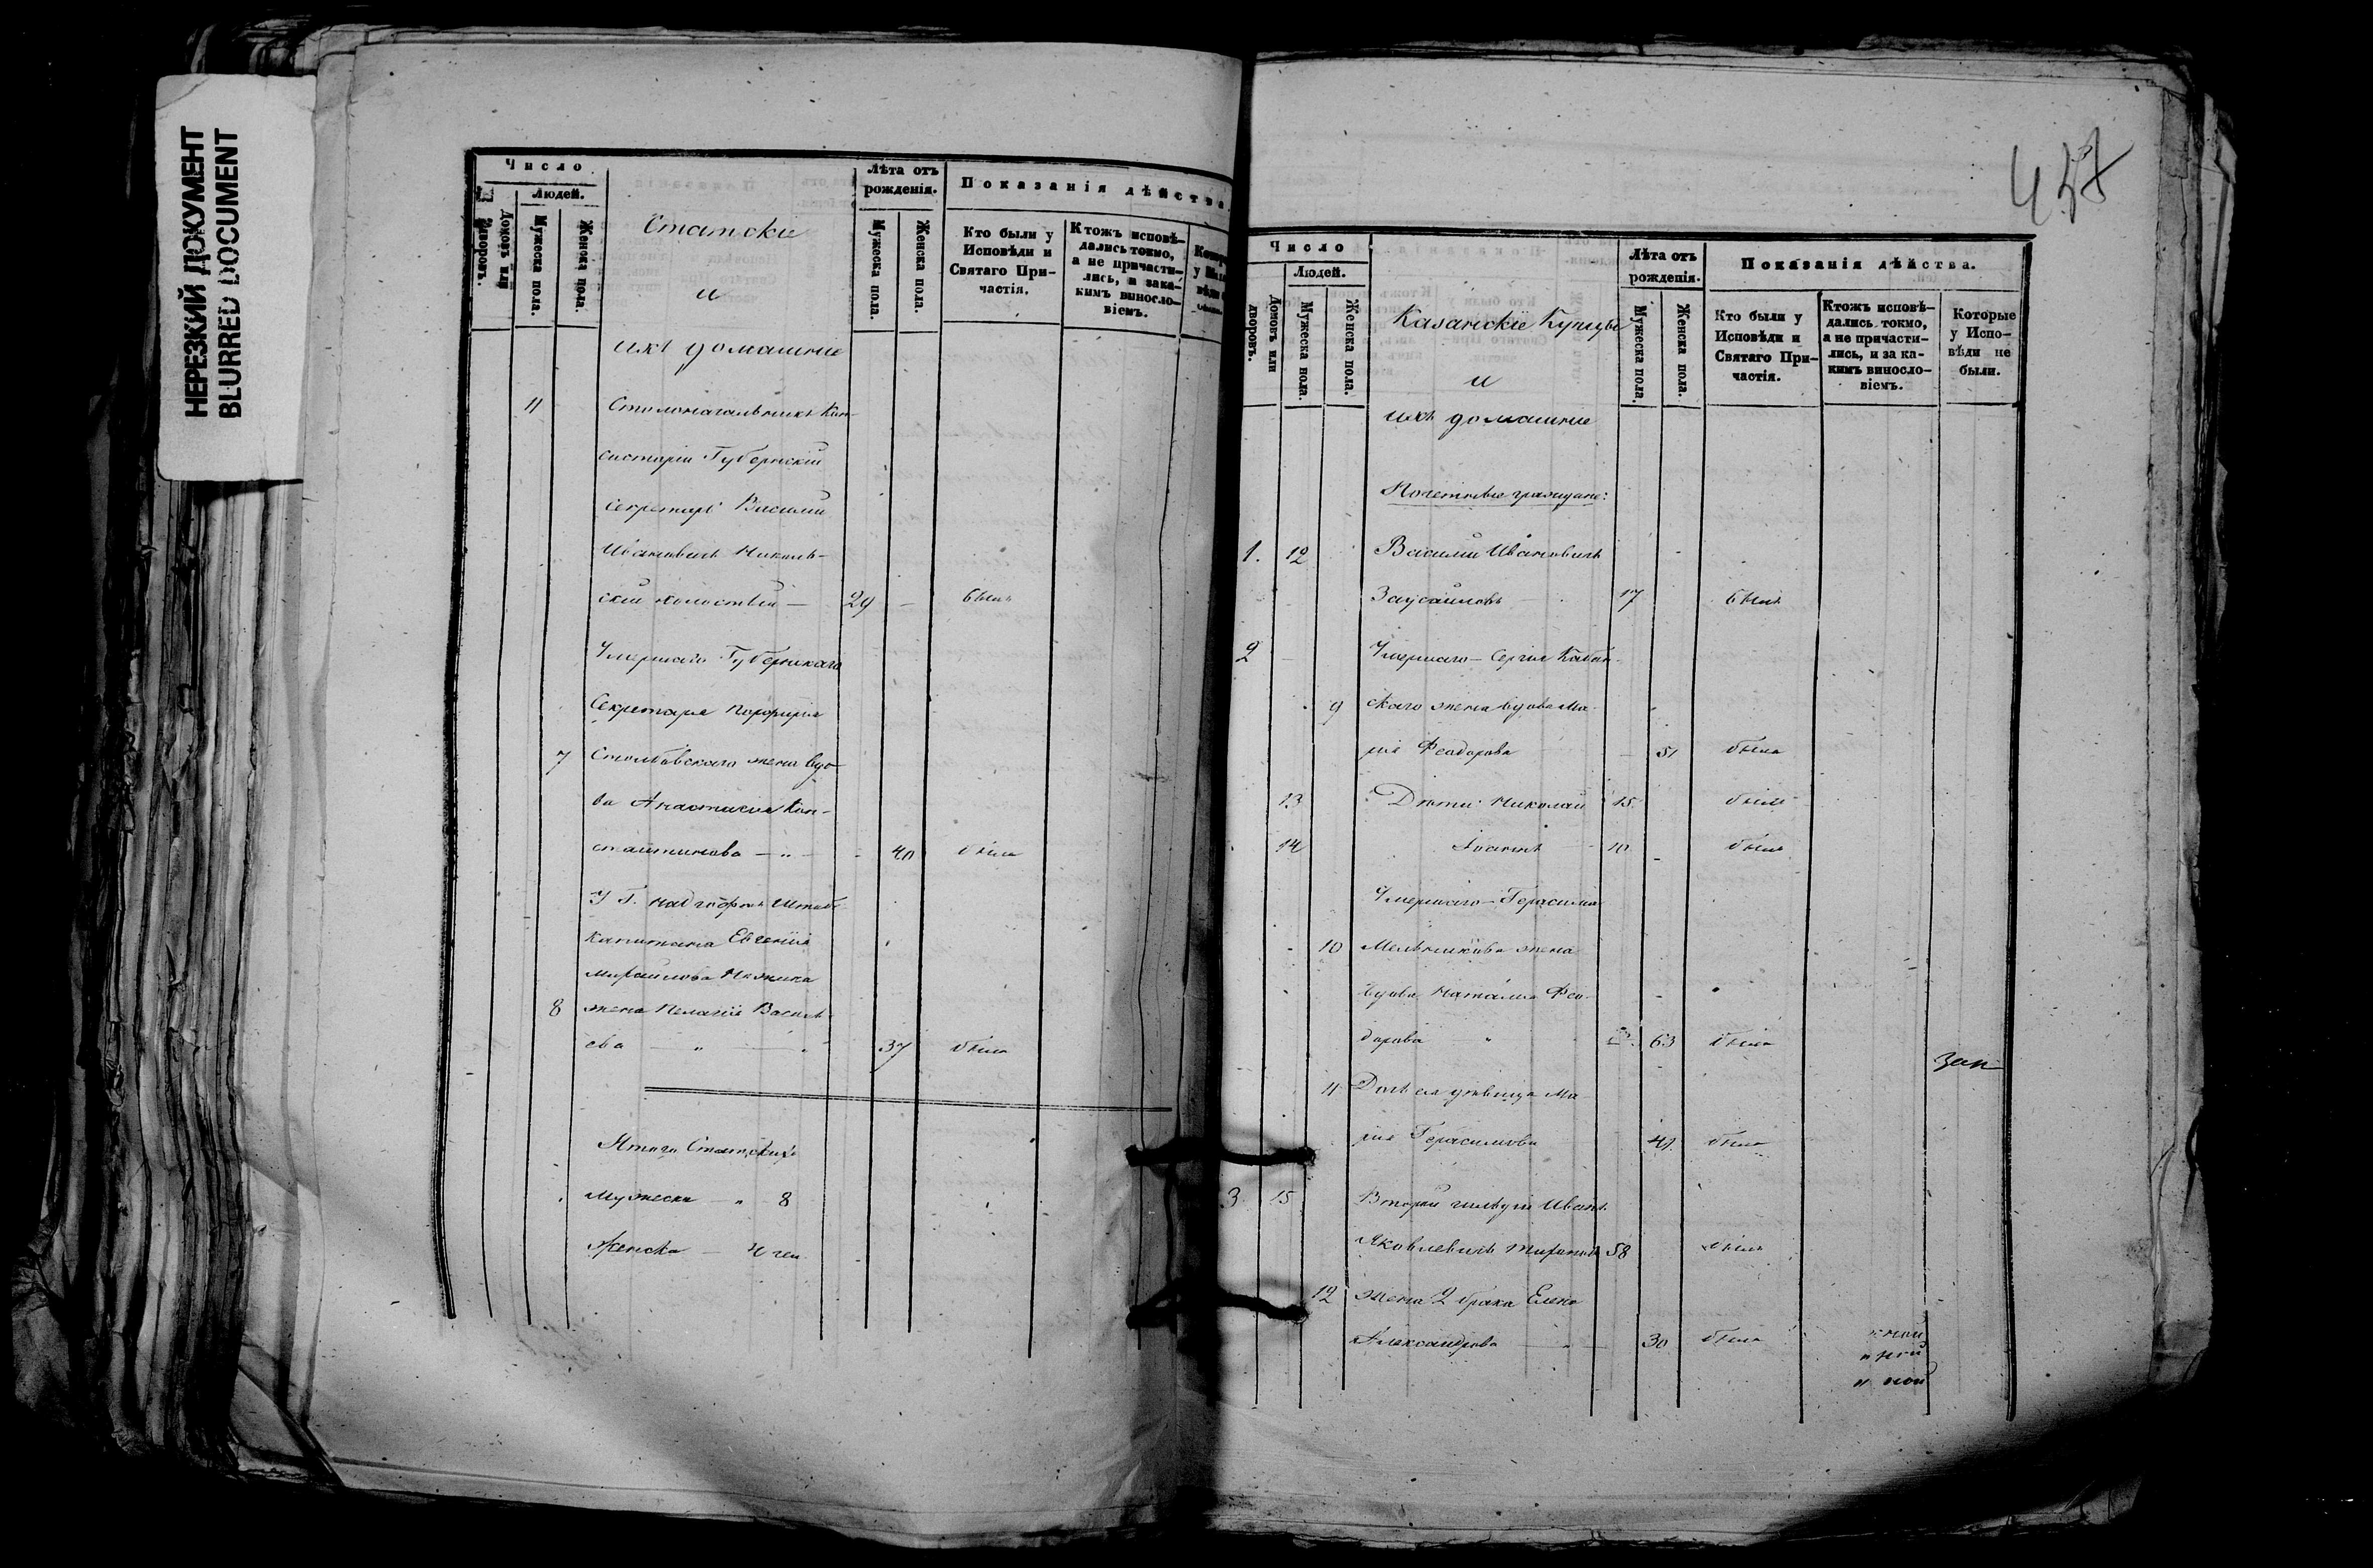 НЕРЕЗКИЙ ДОКУМЕНТ
BLURRED DOCUMENT
Число
Людей.
Домовъ или дворовъ.
Мужеска пола.
Женска пола.
Статскіе
и
ихъ домашніе
Лѣта отъ рожденія.
Мужеска пола.
Женска пола.
Показанія дѣйства.
Кто были у Исповѣди и Святаго Причастія.
Ктожъ исповѣдались токмо, а не причастились, и за какимъ винословіемъ.
11 Столоначальникъ Кон-
систоріи Губернскій
Секретарь Василій
Ивановичъ Николь-
скій холостый — 29 — былъ
Умершаго Губернскаго
Секретаря Порфирія
7 Столбовскаго жена вдо-
ва Анастасія Кон-
стантинова — " — 40 была
У Г.
Капитана Евгенія
Михайлова
8 жена Пелагія Василь-
ева — " — 37 была
Итого Статскихъ
Мужеска — " 8
Женска —
Число
Людей.
Домовъ или дворовъ.
Мужеска пола.
Женска пола.
Казанскіе Купцы
и
ихъ домашніе
Лѣта отъ рожденія.
Мужеска пола.
Женска пола.
Показанія дѣйства.
Кто были у Исповѣди и Святаго Причастія.
Ктожъ исповѣдались токмо, а не причастились, и за какимъ винословіемъ.
Которые у Исповѣди не были.
Почетные граждане:
1. 12 Василій Ивановичъ
Заусайловъ 17 былъ
2 Умершаго — Сергія
9 скаго жена вдова Ма-
рія Феодорова — 51 была
13 Дѣти: Николай 15 былъ
14 Іоаннъ 10 былъ
Умершаго — Герасима
10 Мельникова жена
вдова Наталія Фео-
дорова " 63 была
11 Дочь ея дѣвица Ма-
рія Герасимова 41 была
3 15 Второй гильдіи Иванъ
Яковлевичъ 58 былъ
12 жена 2 брака Елена
Александрова — " — 30 была